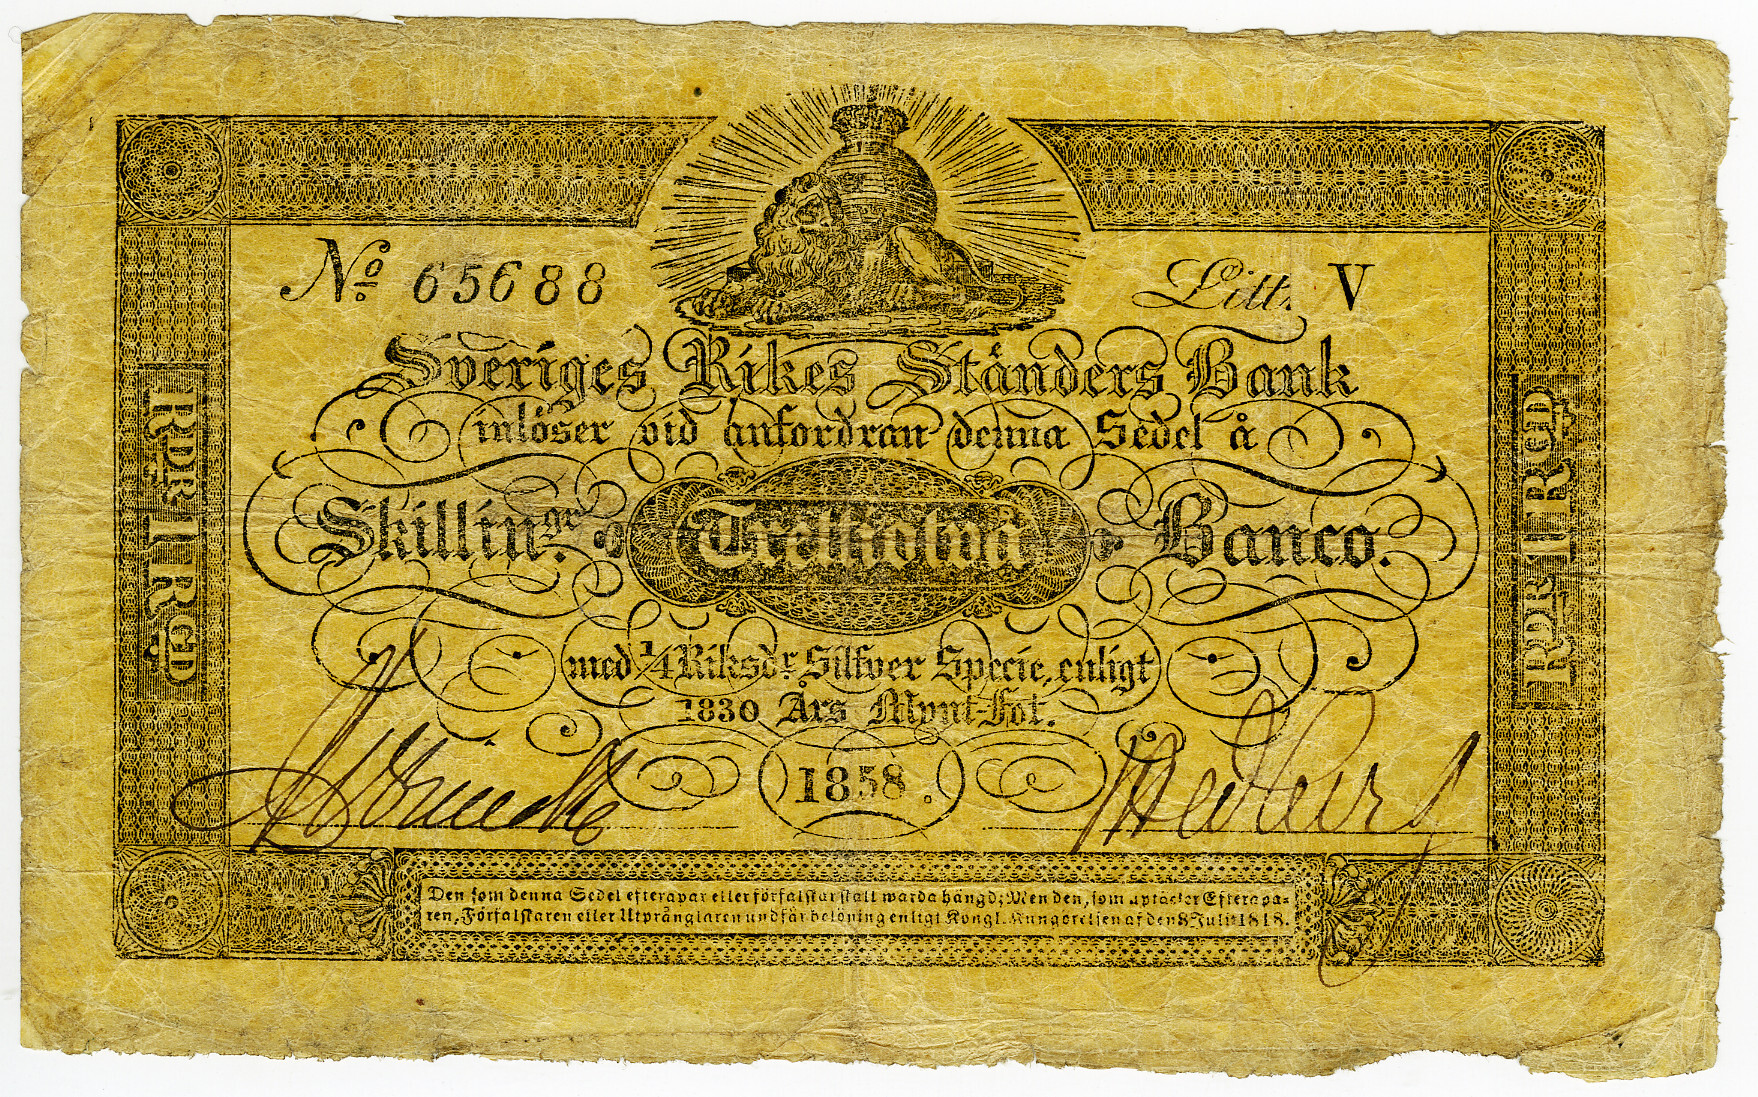 No 65688
Litt. V
Sveriges Rikes Ständers Bank
inlöser vid anfordran denna Sedel å
Skillingr Trettiotwå Banco.
med 1/4 Riksdr Silfver Specie, enligt
1830 Års Mynt-Fot.
1858.
RDR 1 RGD
RDR 1 RGD
Den som denna Sedel efterapar eller förfalskar skall warda hängd; Men den, som uptäcker Efterapa=
ren, Förfalskaren eller Utprånglaren undfår belöning enligt Kongl. Kungörelsen af den 8 Julii 1818.